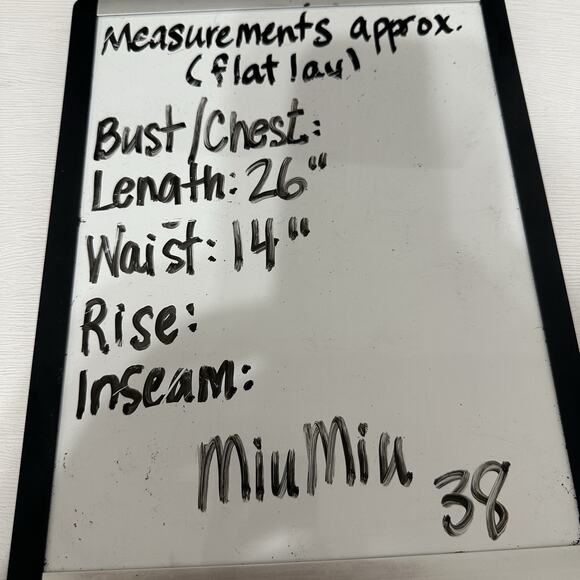 Measurements approx.
(flat lay)
Bust/Chest:
Length: 26"
Waist: 14"
Rise:
Inseam:
Miu Miu
38